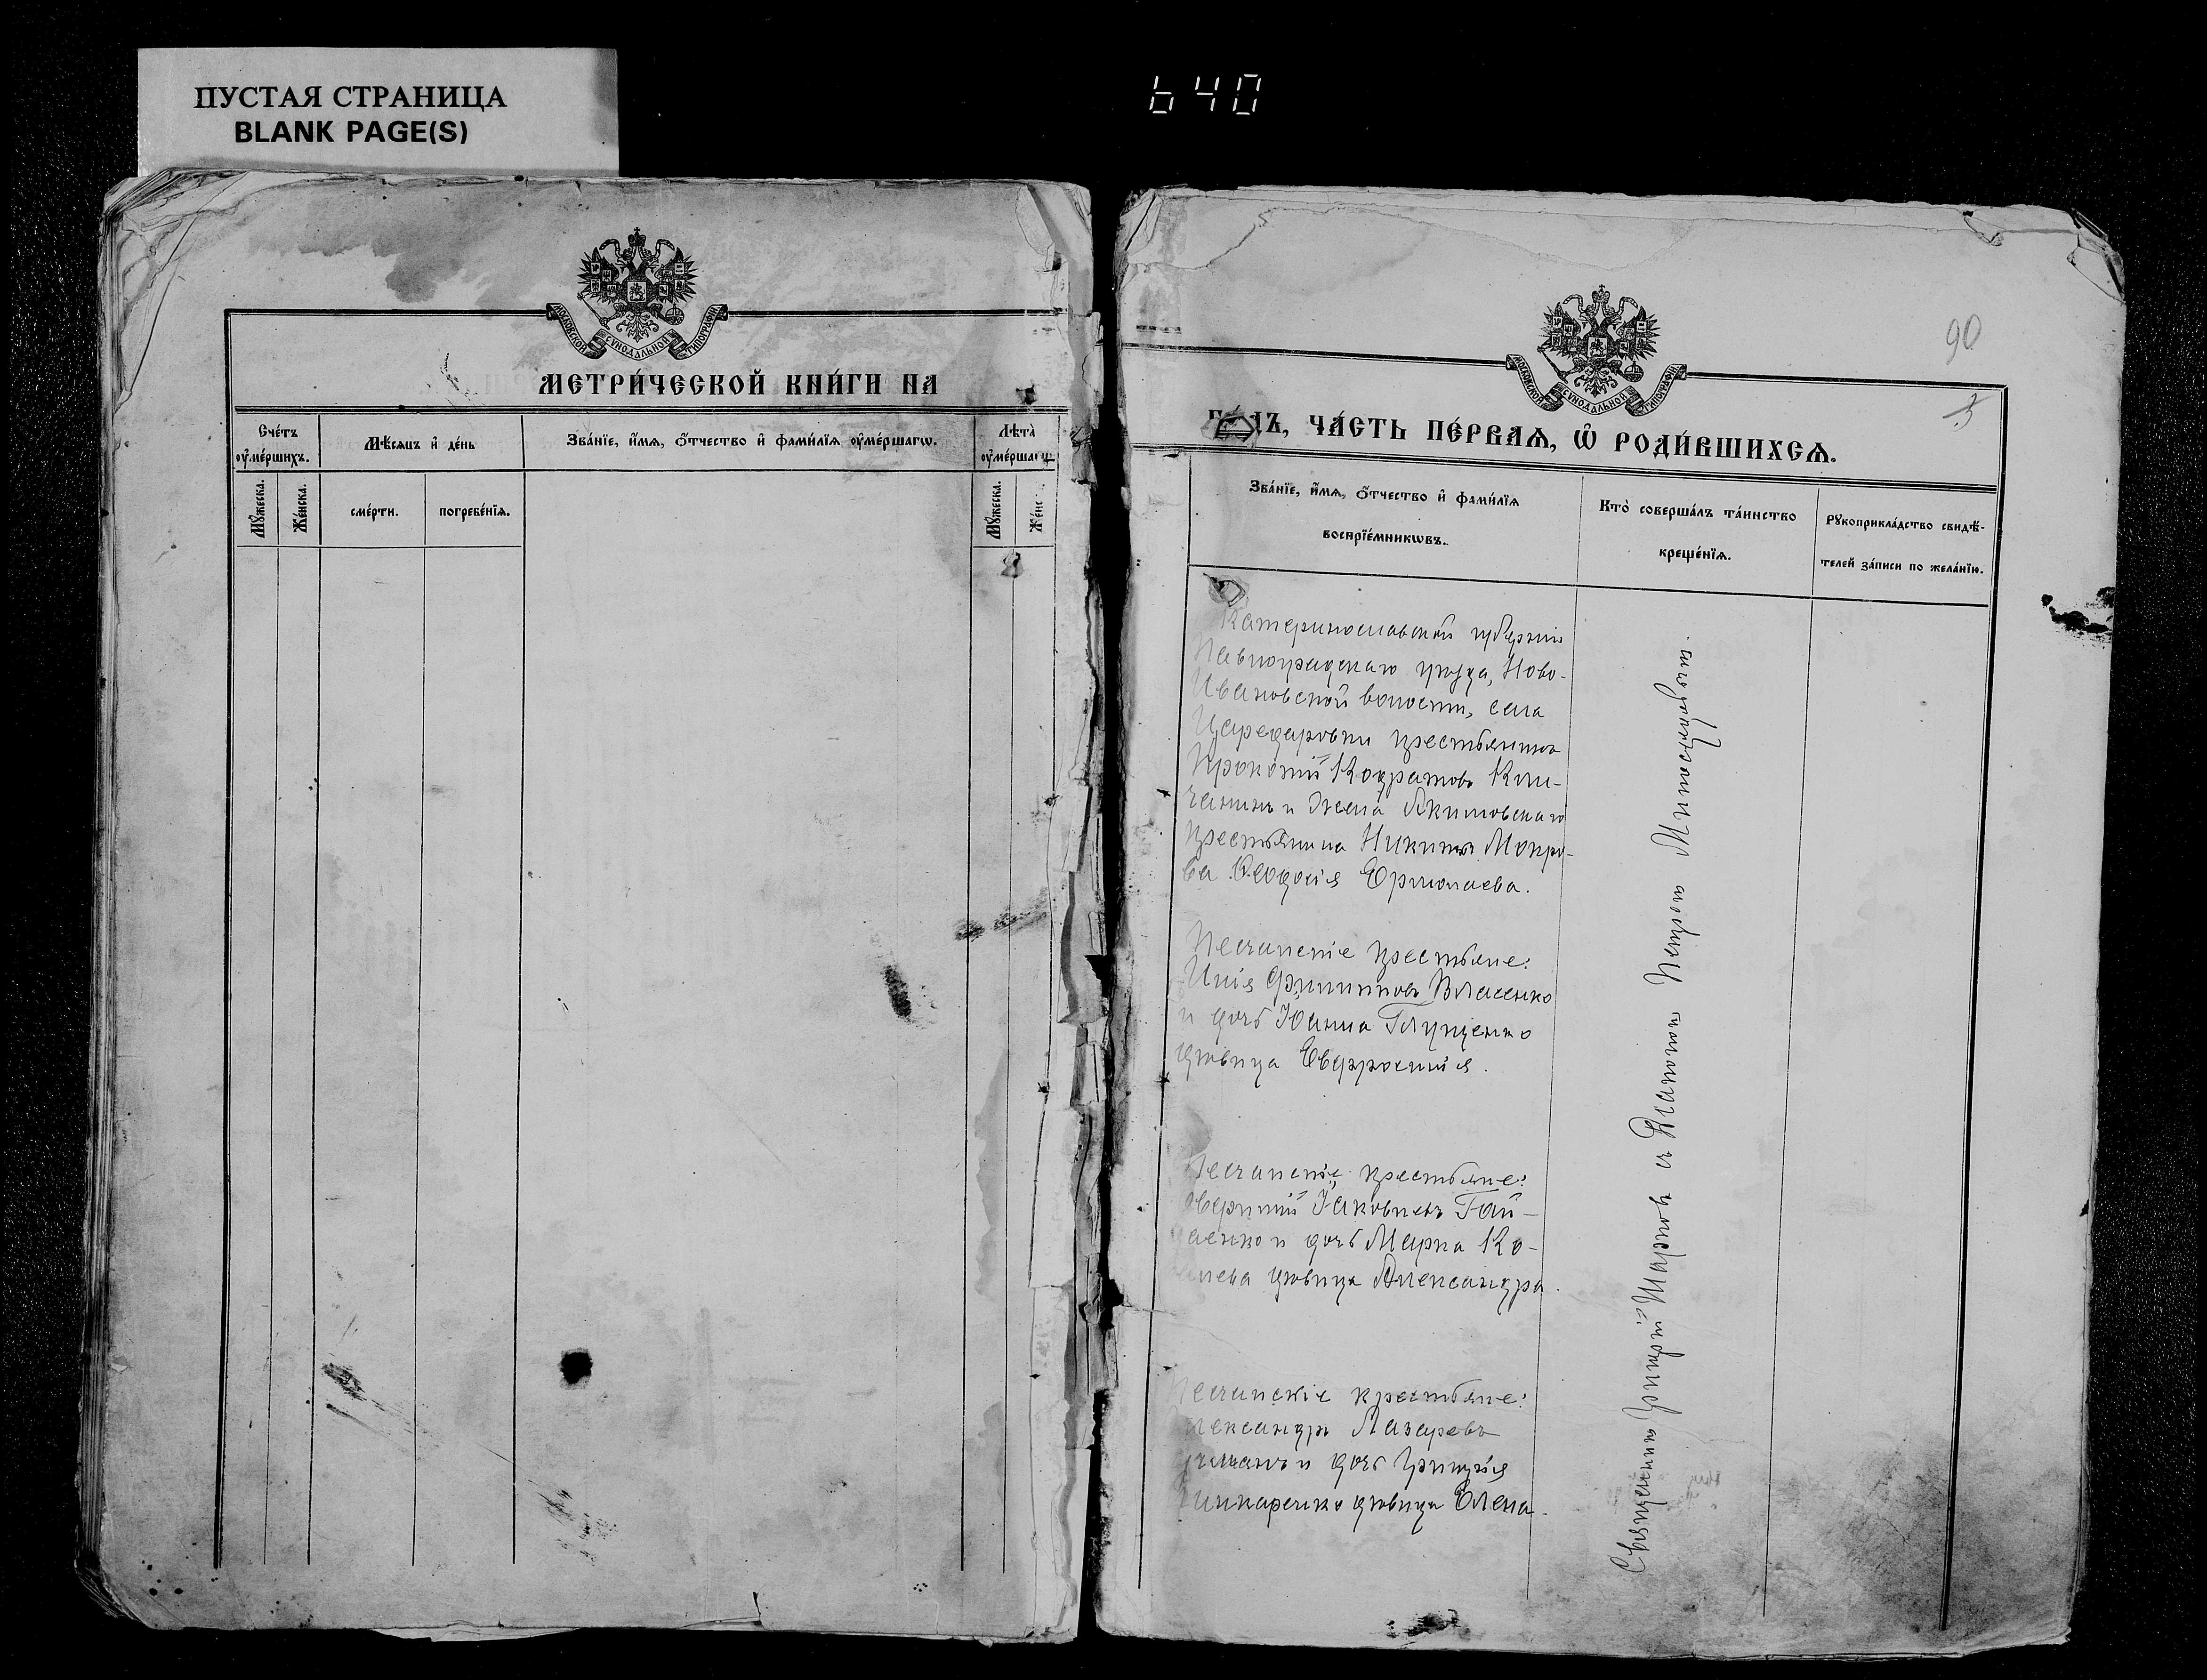 ПУСТАЯ СТРАНИЦА
BLANK PAGE(S)
640
МОСКОВСКОЙ СѴНОДАЛЬНОЙ ТИПОГРАФІИ
МЕТРИ́ЧЕСКОЙ КНИ́ГИ НА
Сче́тъ оу҆ме́ршихъ.
Мѣ́сяцъ и҆ де́нь
Зва́нїе, и҆́мя, ѻ҆́тчество и҆ фами́лїя оу҆ме́ршагѡ.
Лѣ́та оу҆ме́ршагѡ
Мꙋ́жеска.
Же́нска.
сме́рти.
погребе́нїя.
Мꙋ́жеска.
Же́нс
90
МОСКОВСКОЙ СѴНОДАЛЬНОЙ ТИПОГРАФІИ
3
ГО́ДЪ, ЧА́СТЬ ПЕ́РВАЯ, Ѽ РОДИ́ВШИХСЯ.
Зва́нїе, и҆́мя, ѻ҆́тчество и҆ фами́лїя
воспрїе́мникѡвъ.
Кто̀ соверша́лъ та́инство
креще́нїя.
Рꙋкоприкла́дство свидѣ́-
телей за́писи по жела́нїю.
Катеринославской губерніи
Павлоградскаго уѣзда, Ново-
Ивановской волости, села
Цередаровки крестьянинъ
Прокопій Кондратовъ Кли-
чанинъ и жена Акимовскаго
крестьянина Никиты Мокро-
ва Ѳеодосія Ермолаева.
Песчанскіе крестьяне:
Илія Филипповъ Власенко
и дочь Іоанна Глущенко
дѣвица Евфросинія.
Песчанскіе крестьяне:
Аверкій Іаковлевъ Гай-
даенко и дочь Марка Ко-
лева дѣвица Александра.
Песчанскіе крестьяне:
лександръ Лазаревъ
и дочь Григорія
инкаренко дѣвица Елена.
Священникъ Григорій Шаровъ съ псаломщ. Петромъ Милостивымъ.